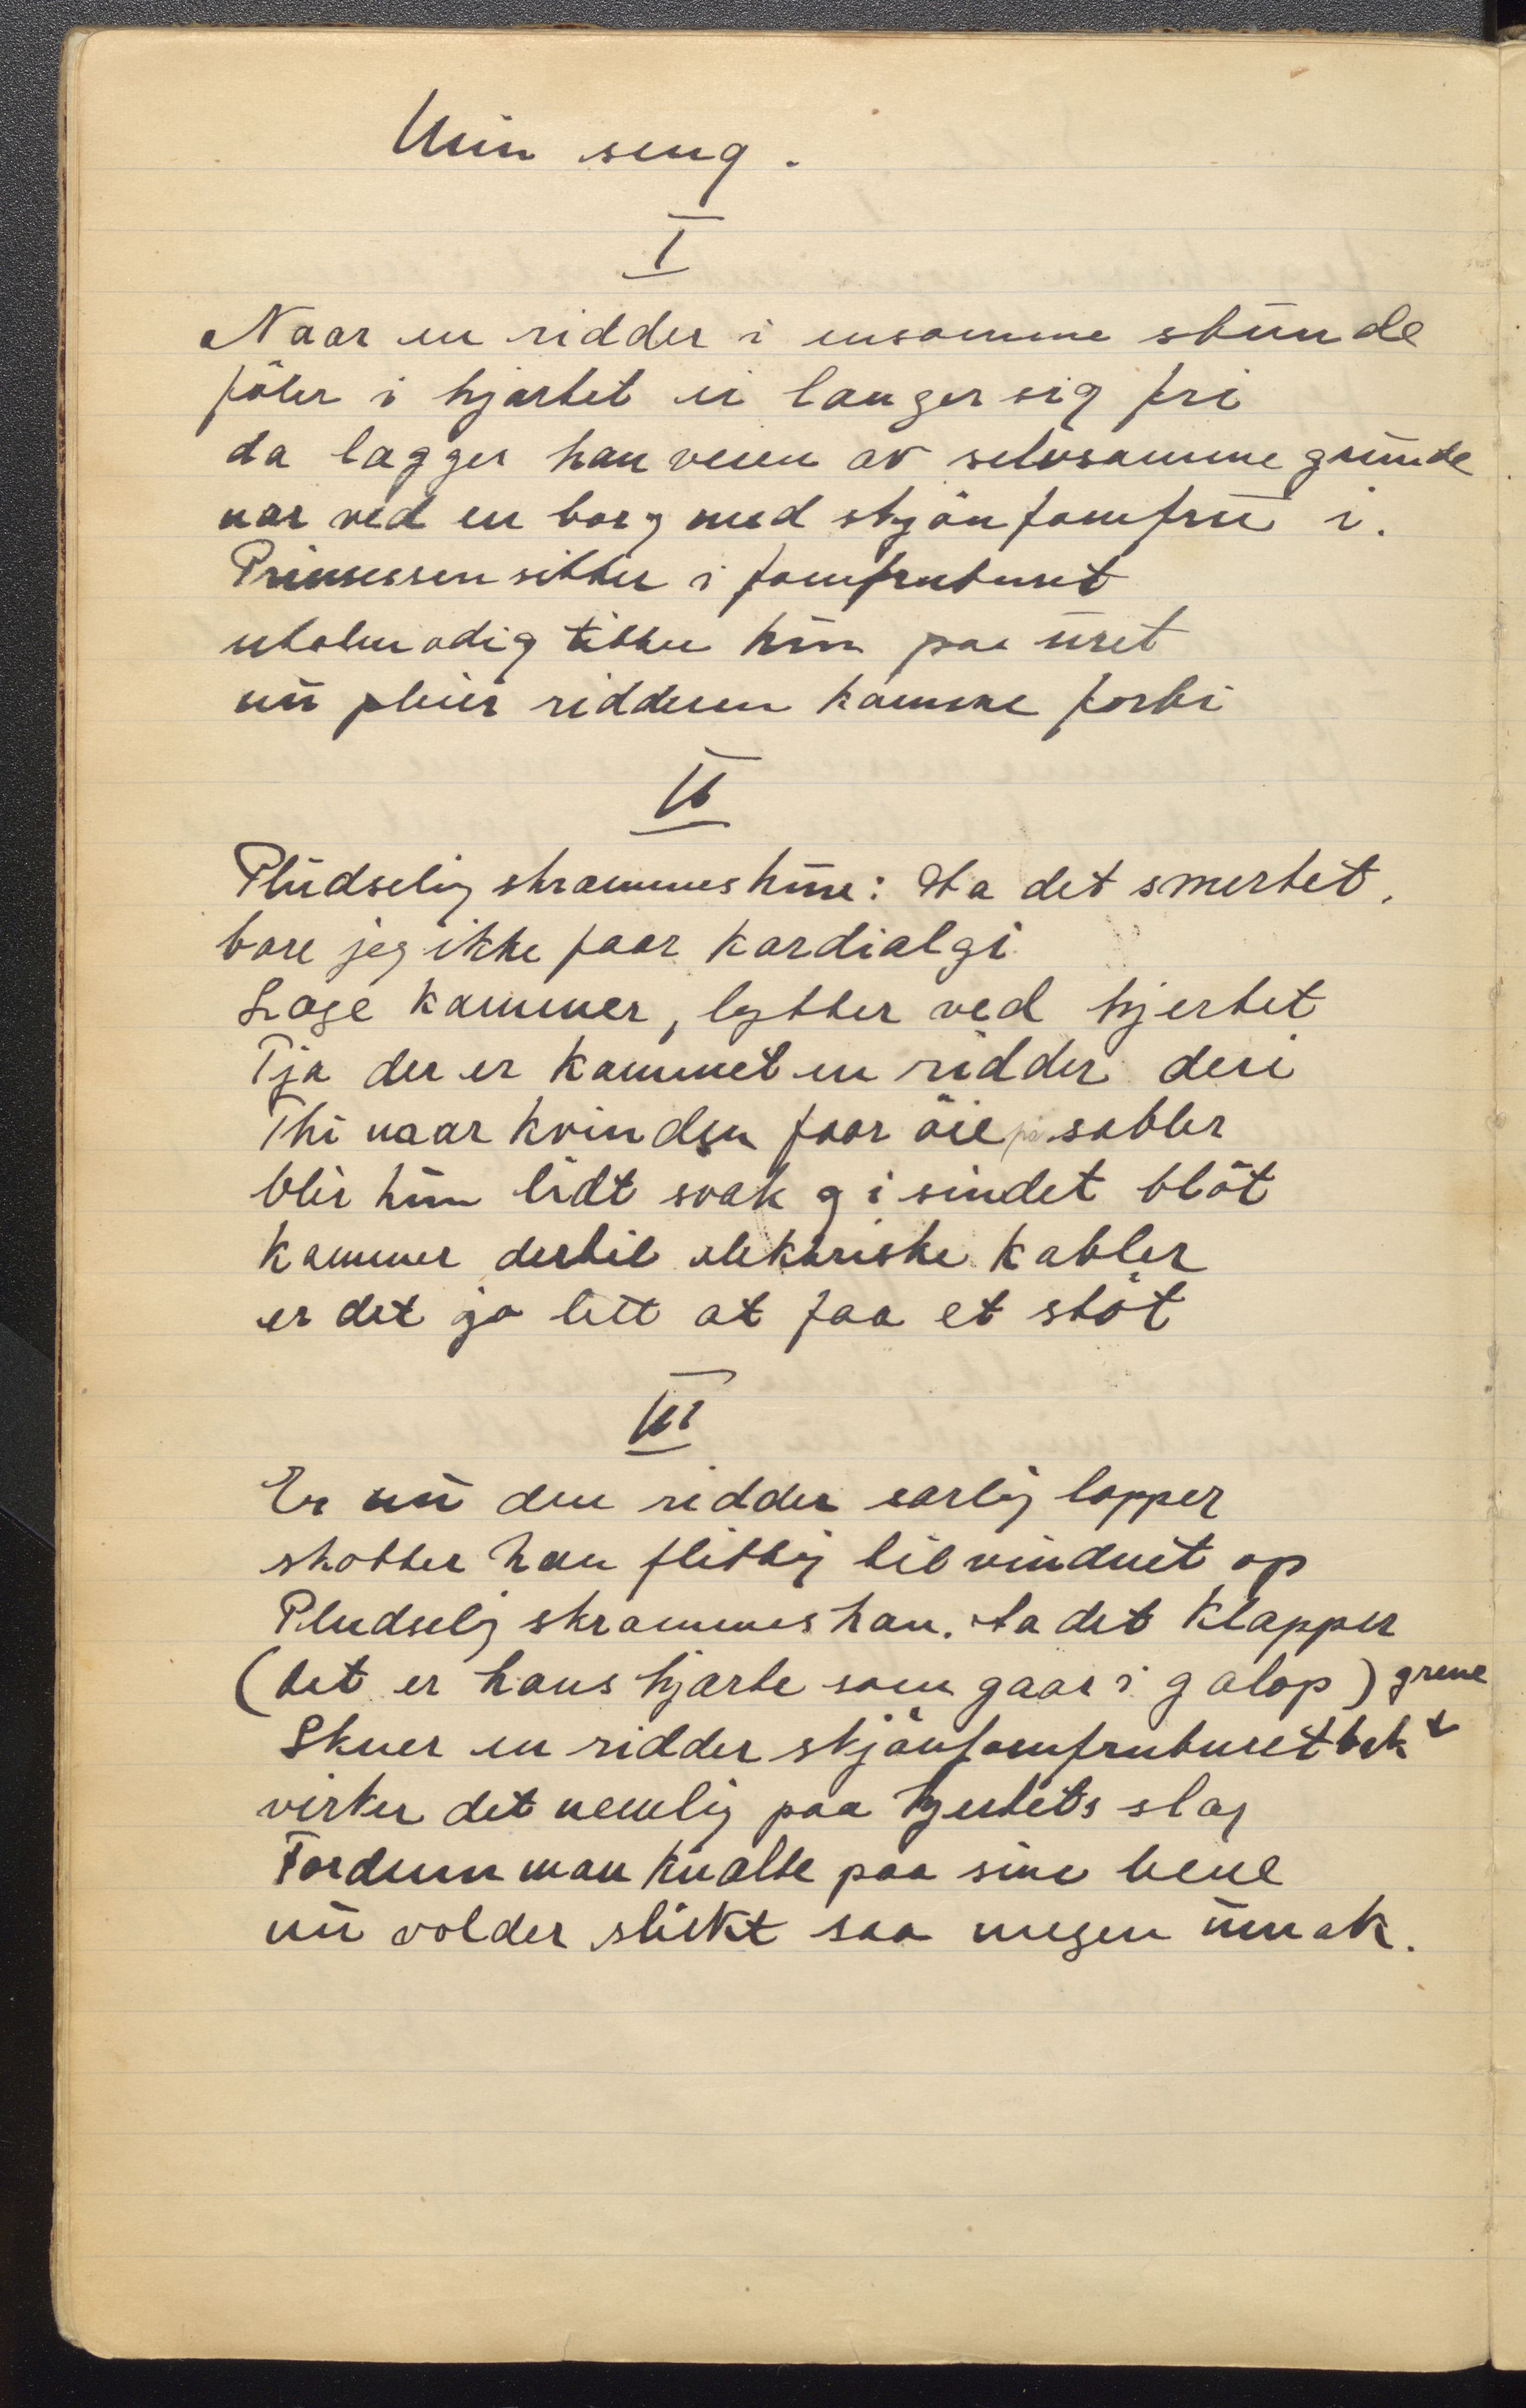 Min seng.
I
Naar en ridder i ensomme stunde
föler i hjertet ei længer sig fri
da lægger han veien av selvsamme grunde
nær ved en borg med skjön jomfru i.
Prinsessen sitter i jomfruburet
utolmodig titter hun paa uret
nu pleier ridderen komme forbi
II
Pludselig skræmmes hun: Ha det smertet,
bare jeg ikke faar kardialgi
Læge kommer, lytter ved hjertet
Tja der er kommet en ridder deri
Thi naar kvinden faar öie på sabler
blir hun lidt svak og i sindet blöt
kommer dertil elektriske kabler
er det jo lett at faa et stöt
III
Er nu den ridder særlig tapper
skotter han flittig til vinduet op
Pludselig skræmmes han. Ha det klapper
(det er hans hjerte som gaar i galop)
Skuer en ridder skjönjomfruburet bak grene
virker det nemlig paa hjertets slag
Fordum man knalte paa sine bene
nu volder slikt saa megen umak.